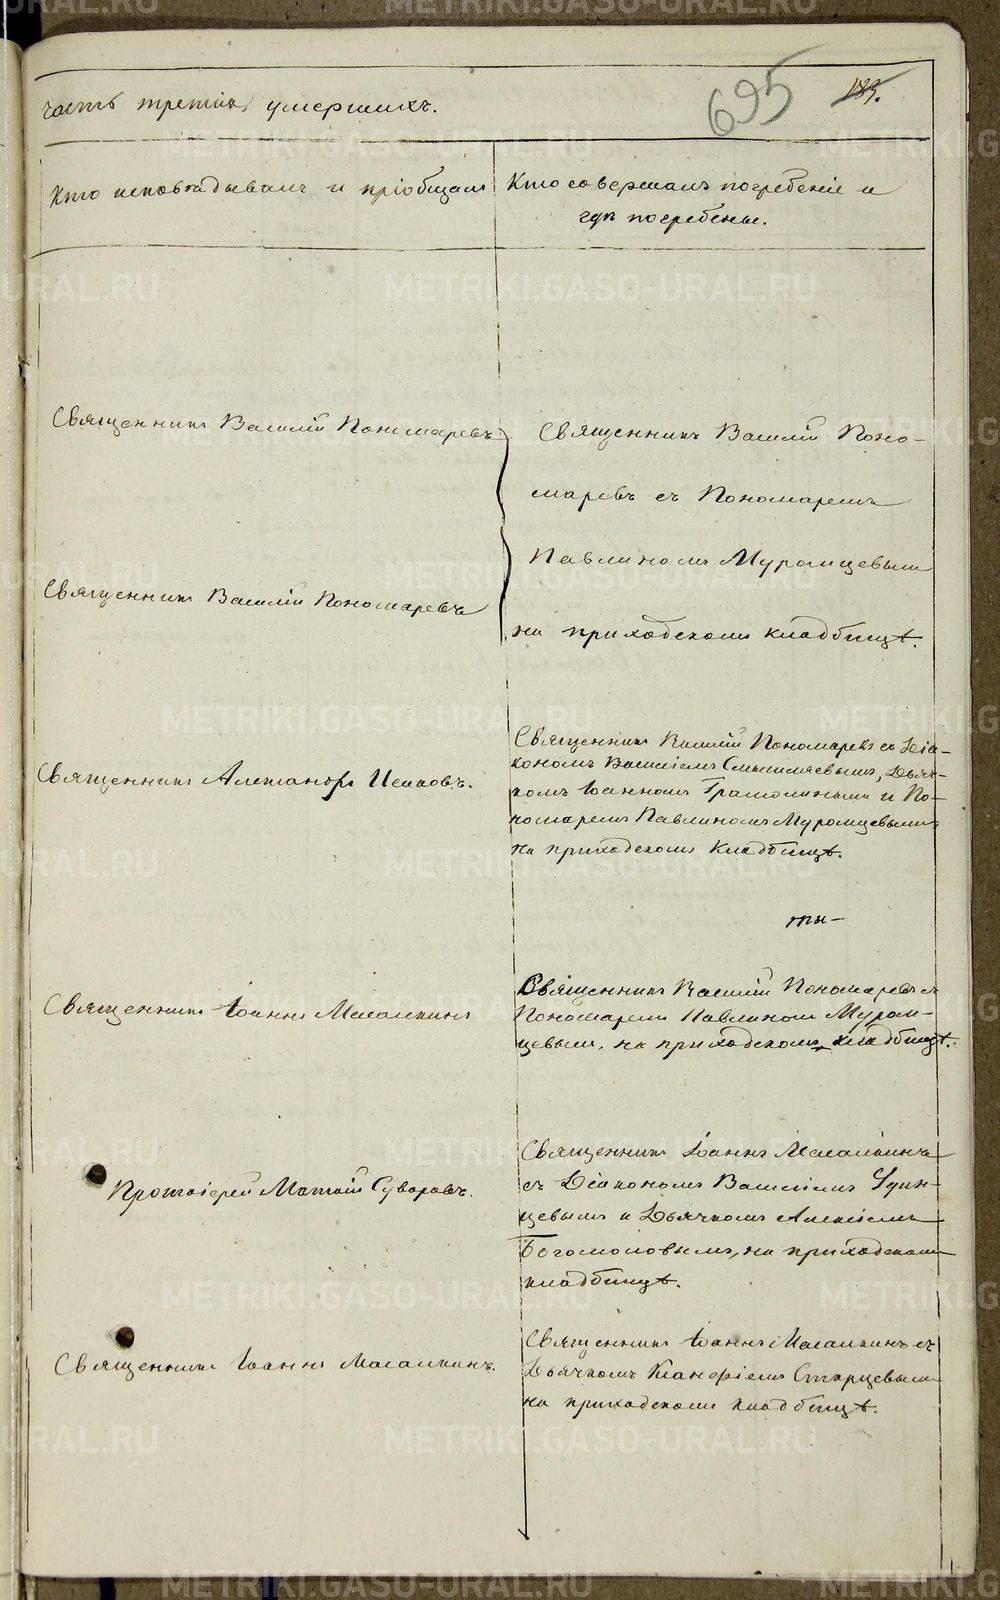 часть третія, умершихъ.
695
183.
Кто исповѣдывалъ и пріобщалъ
Кто совершалъ погребеніе и
гдѣ погребены.
Священникъ Василій Пономаревъ
Священникъ Василій Поно-
маревъ съ Пономаремъ
Павлиномъ Муромцевымъ
на приходскомъ кладбищѣ.
Священникъ Василій Пономаревъ
Священникъ Александръ Исаковъ.
Священникъ Василій Пономаревъ съ Діа-
кономъ Василіемъ Смышляевымъ, Дьяч-
комъ Іоанномъ Грамолинымъ и По-
номаремъ Павлиномъ Муромцевымъ
на приходскомъ кладбищѣ.
ты-
Священникъ Іоаннъ Масалкинъ
Священникъ Василій Пономаревъ съ
Пономаремъ Павлиномъ Муром-
цевымъ, на приходскомъ кладбищѣ.
Протоіерей Матвій Суворовъ.
Священникъ Іоаннъ Масалкинъ
съ Діакономъ Василіемъ
цевымъ и Дьячкомъ Алексіемъ
Богомоловымъ, на приходскомъ
кладбищѣ.
Священникъ Іоаннъ Масалкинъ.
Священникъ Іоаннъ Масалкинъ съ
Дьячкомъ Старцевымъ
на приходскомъ кладбищѣ.
METRIKI.GASO-URAL.RU